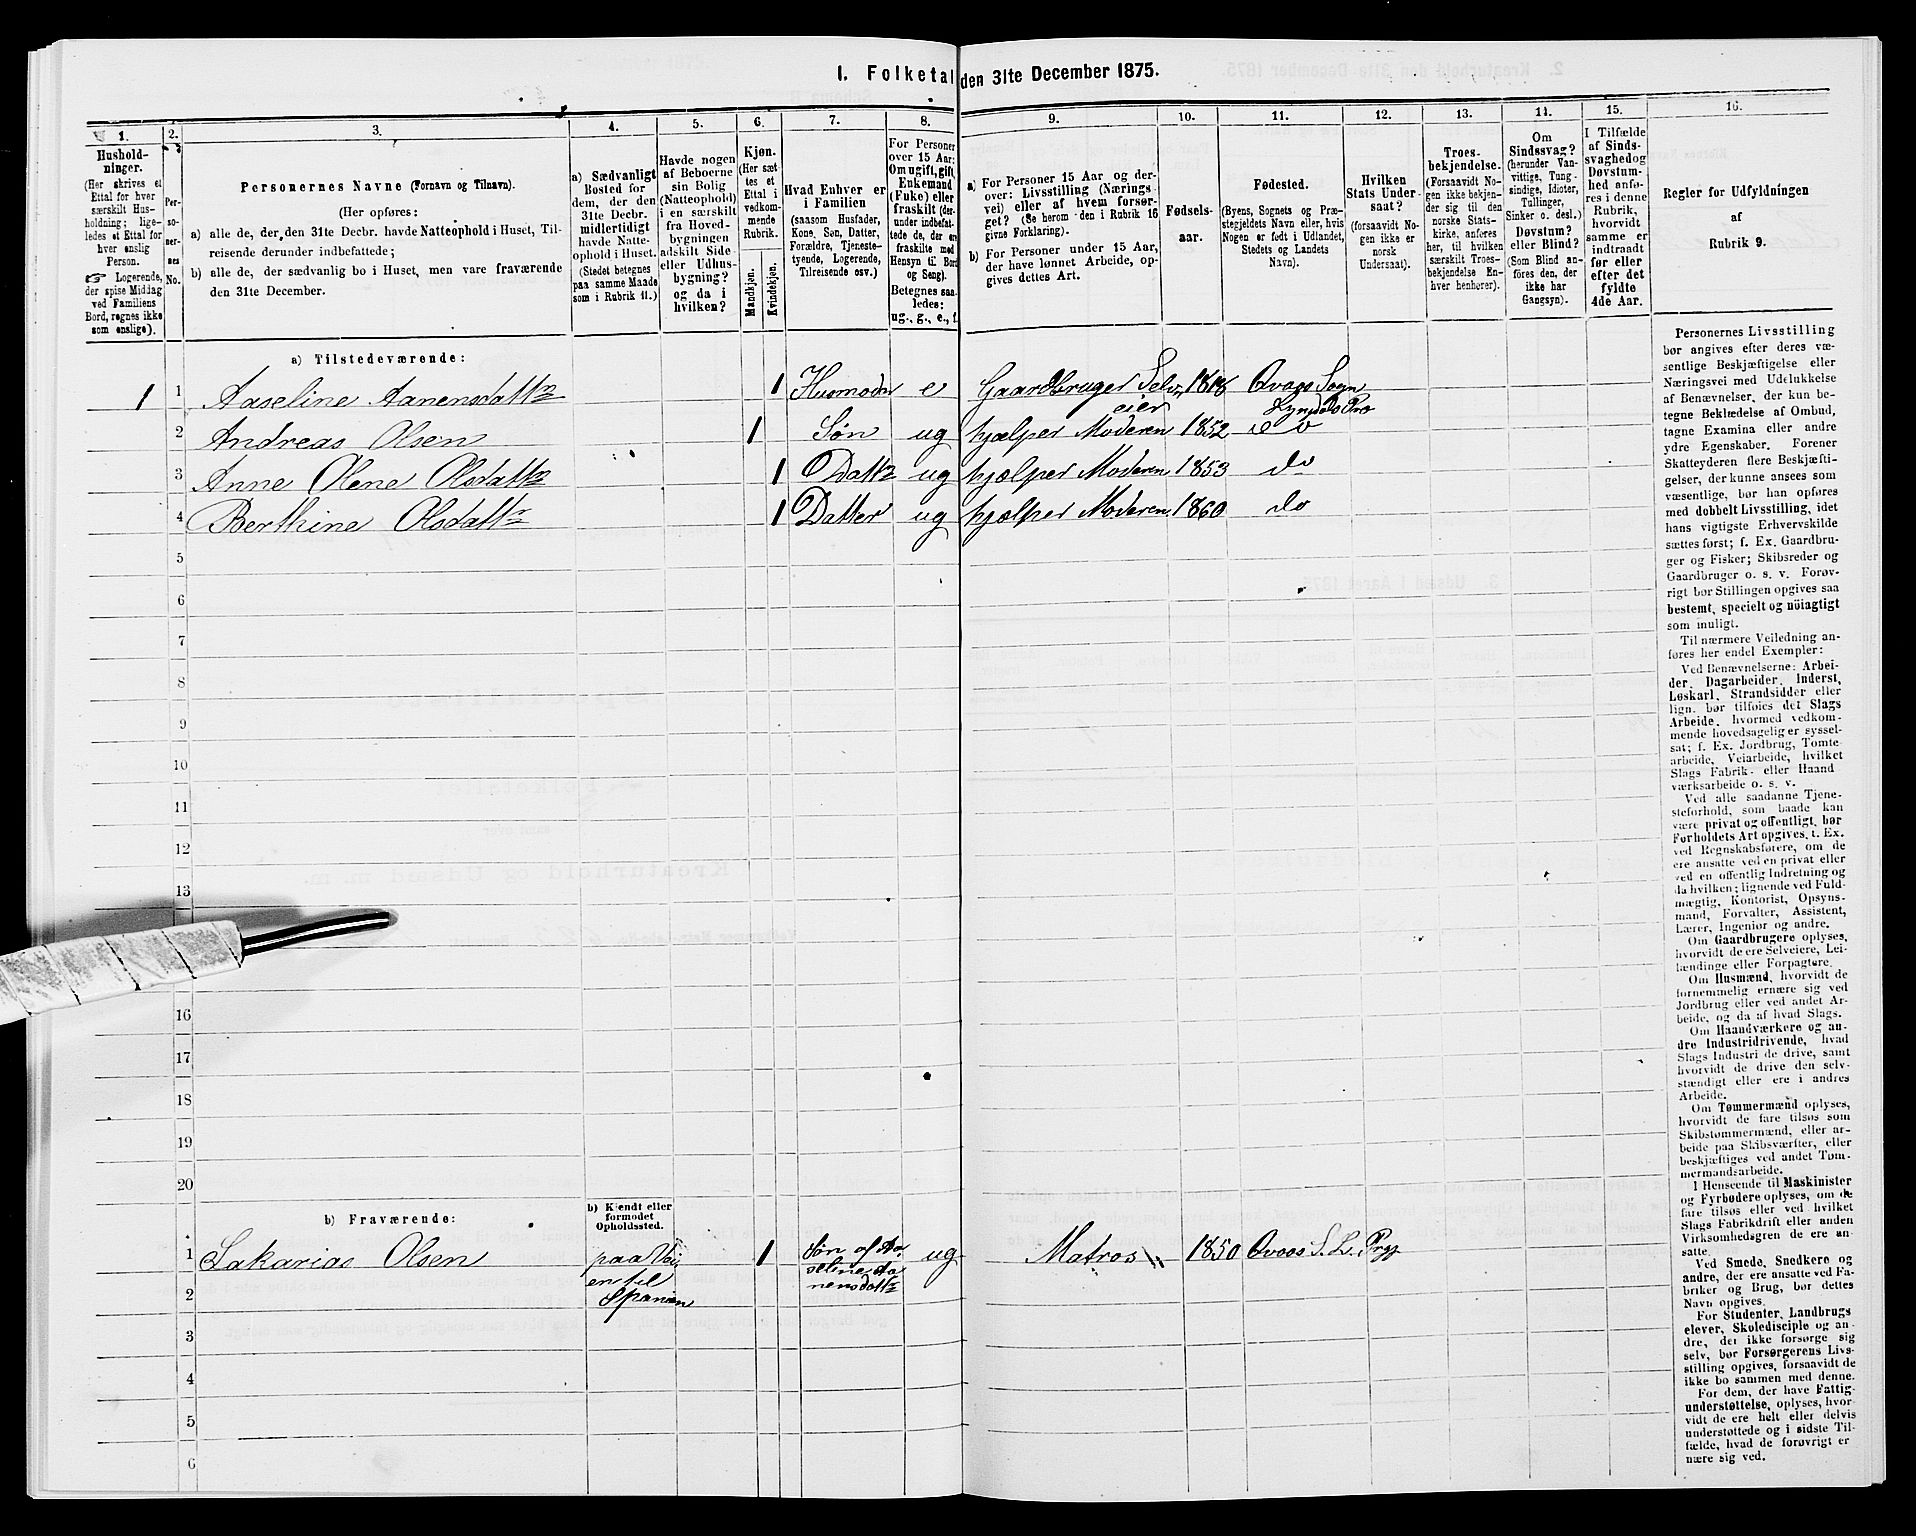 I. Folketal den 31te December 1875.
1. 2. 3. 4. 5. 6. 7. 8. 9. 10. 11. 12. 13. 14. 15. 16.
Hushold-
ninger.
(Her skrives et
Ettal for hver
særskilt Hus-
holdning; lige-
ledes et Ettal for
hver enslig
Person.
☞ Logerende,
der spise Middag
ved Familiens
Bord, regnes ikke
som enslige).
Per-
so-
ner-
nes
No.
Personernes Navne (Fornavn og Tilnavn).
(Her opføres:
a) alle de, der den 31te Decbr. havde Natteophold i Huset, Til-
reisende derunder indbefattede;
b) alle de, der sædvanlig bo i Huset, men vare fraværende
den 31te December.
a) Sædvanligt
Bosted for
dem, der den
31te Decbr.
midlertidigt
havde Natte-
ophold i Huset.
(Stedet betegnes
paa samme Maade
som i Rubrik 11.)
Havde nogen
af Beboerne
sin Bolig
(Natteophold)
i en særskilt
fra Hoved-
bygningen
adskilt Side-
eller Udhus-
bygning?
og da i
hvilken?
Kjøn.
(Her sæt-
tes et
Ettal i
vedkom-
mende
Rubrik.
Mandkjøn.
Kvindekjøn.
Hvad Enhver er
i Familien
(saasom Husfader,
Kone, Søn, Datter,
Forældre, Tjeneste-
tyende, Logerende,
Tilreisende osv.)
For Personer
over 15 Aar:
Om ugift, gift,
Enkemand
(Enke) eller
fraskilt (der-
under indbefat-
tede de, der ere
fraskilte med
Hensyn til Bord
og Seng).
Betegnes saa-
ledes:
ug., g., e., f.
a) For Personer 15 Aar og der-
over: Livsstilling (Nærings-
vei) eller af hvem forsør-
get? (Se herom den i Rubrik 16
givne Forklaring).
b) For Personer under 15 Aar,
der have lønnet Arbeide, op-
gives dettes Art.
Fødsels-
aar.
Fødested.
(Byens, Sognets og Præ-
stegjeldets Navn eller, hvis
Nogen er født i Udlandet,
Stedets og Landets
Navn).
Hvilken
Stats Under-
saat?
(forsaavidt No-
gen ikke er
norsk
Undersaat).
Troes-
bekjendelse.
(Forsaavidt No-
gen ikke bekjen-
der sig til den
norske Stats-
kirke, anføres
her, til hvilken
særskilt Troes-
bekjendelse En-
hver henhører).
Om
Sindssvag?
(herunder Van-
vittige, Tung-
sindige, Idioter,
Tullinger,
Sinker o. desl.)
Døvstum?
eller Blind?
(Som Blind an-
føres den, der
ikke har
Gangsyn).
I Tilfælde
af Sinds-
svaghed og
Døvstum-
hed anfø-
res i denne
Rubrik,
hvorvidt
samme er
indtraadt
før eller
efter det
fyldte
4de Aar.
Regler for Udfyldningen
af
Rubrik 9.
a) Tilstedeværende:
1 1 Aaseline Aanensdattr 1 Husmoder e Gaardbruger Selv- 1818 Qvaas Sogn
eier Lyngdals Pro
2 Andreas Olsen 1 Søn ug hjælper Moderen 1852 do
3 Anne Olene Olsdattr 1 Dattr ug hjælper Moderen 1853 do
4 Berthine Olsdattr 1 Datter ug hjælper Moderen 1860 do
5
6
7
8
9
10
11
12
13
16
17
18
19
20
b) Fraværende:
b) Kjendt eller
formodet
Opholdssted.
1 Sakarias Olsen paa Vei- 1 Søn af Aa- ug Matros 1850 Qvaas S. L. Prgj
en til seline Aa
2 Spanien nensdattr
3
4
5
6
Personernes Livsstilling
bør angives efter deres væ-
sentlige Beskjæftigelse eller
Næringsvei med Udelukkelse
af Benævnelser, der kun be-
tegne Beklædelse af Ombud,
tagne Examina eller andre
ydre Egenskaber. Forener
Skatteyderen flere Beskjæfti-
gelser, der kunne ansees som
væsentlige, bør han opføres
med dobbelt Livsstilling, idet
hans vigtigste Erhvervskilde
sættes først; f. Ex. Gaardbru-
ger og Fisker; Skibsreder og
Gaardbruger o. s. v. Forøv-
rigt bør Stillingen opgives saa
bestemt, specielt og nöiagtigt
som muligt.
Til nærmere Veiledning an-
føres her endel Exempler:
Ved Benævnelserne: Arbei-
der, Dagarbeider, Inderst,
Løskarl, Strandsidder eller
lign. bør tilføies det Slags
Arbeide, hvormed vedkom-
mende hovedsagelig er syssel-
sat; f. Ex. Jordbrug, Tomte-
arbeide, Veiarbeide, hvilket
Slags Fabrik- eller Haand
værksarbeide o. s. v.
Ved alle saadanne Tjene-
steforhold, som baade kan
være privat og offentligt, bør
Forholdets Art opgives, t. Ex.
ved Regnskabsførere, om de
ere ansatte ved en privat eller
ved en offentlig Indretning og
da hvilken; lignende ved Fuld-
mægtig, Kontorist, Opsyns-
mand, Forvalter, Assistent,
Lærer, Ingeniør og andre.
Om Gaardbrugere oplyses,
hvorvidt de ere Selveiere, Lei-
lændinge eller Forpagtere.
Om Husmænd, hvorvidt de
fornemmelig ernære sig ved
Jordbrug eller ved andet Ar-
beide, og da af hvad Slags.
Om Haandværkere og an-
dre Industridrivende, hvad
Slags Industri de drive, samt
hvorvidt de drive den selv-
stændigt eller ere i andres
Arbeide.
Om Tømmermænd oplyses,
hvorvidt de fare tilsøs som
Skibstømmermænd, eller ar-
beide paa Skibsværfter, eller
beskjæftiges ved andet Tøm-
mermandsarbeide.
I Henseende til Maskinister
og Fyrbødere oplyses, om de
fare tilsøs eller ved hvilket
Slags Fabrikdrift eller anden
Virksomhedsgren de ere an-
satte.
Ved Smede, Snedkere og
andre, der ere ansatte ved Fa-
briker og Brug, bør dettes
Navn opgives.
For Studenter, Landbrugs
elever, Skoledisciple og an-
dre, der ikke forsørge sig
selv, bør Forsørgerens Livs-
stilling opgives, forsaavidt de
ikke bo sammen med denne.
For dem, der have Fattig-
understøttelse, oplyses, hvor-
vidt de ere helt eller delvis
understøttede og i sidste Til-
fælde, hvad de forøvrigt er
nære sig ved.